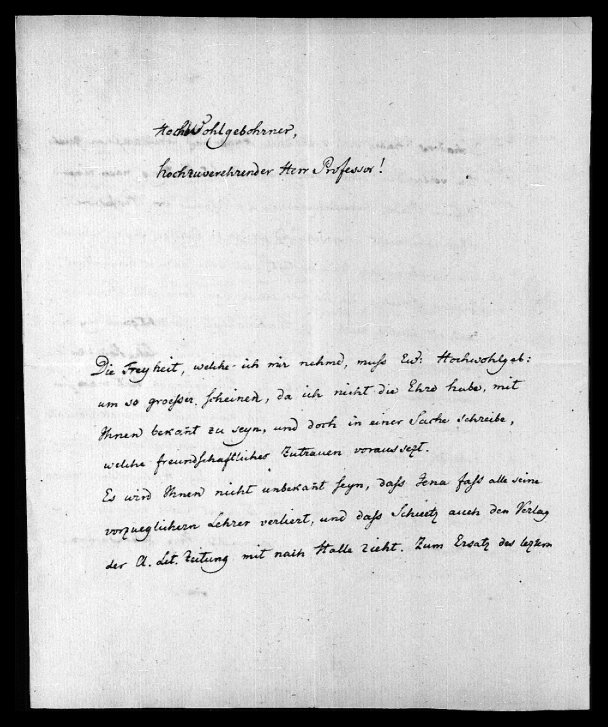 HochWohlgebohrner,
hochzuverehrender Herr Professor!
Die Freyheit, welche ich mir nehme, muss Ew: Hochwohlgeb:
um so groesser scheinen, da ich nicht die Ehre habe, mit
Ihnen bekañt zu seyn, und doch in einer Sache schreibe,
welche freundschaftliches Zutrauen voraussezt.
Es wird Ihnen nicht unbekañt seyn, dass Jena fast alle seine
vorzueglichern Lehrer verliert, und dass Schuetz auch den Verlag
der A. Lit. Zeitung mit nach Halle zieht. Zum Ersatz des leztern